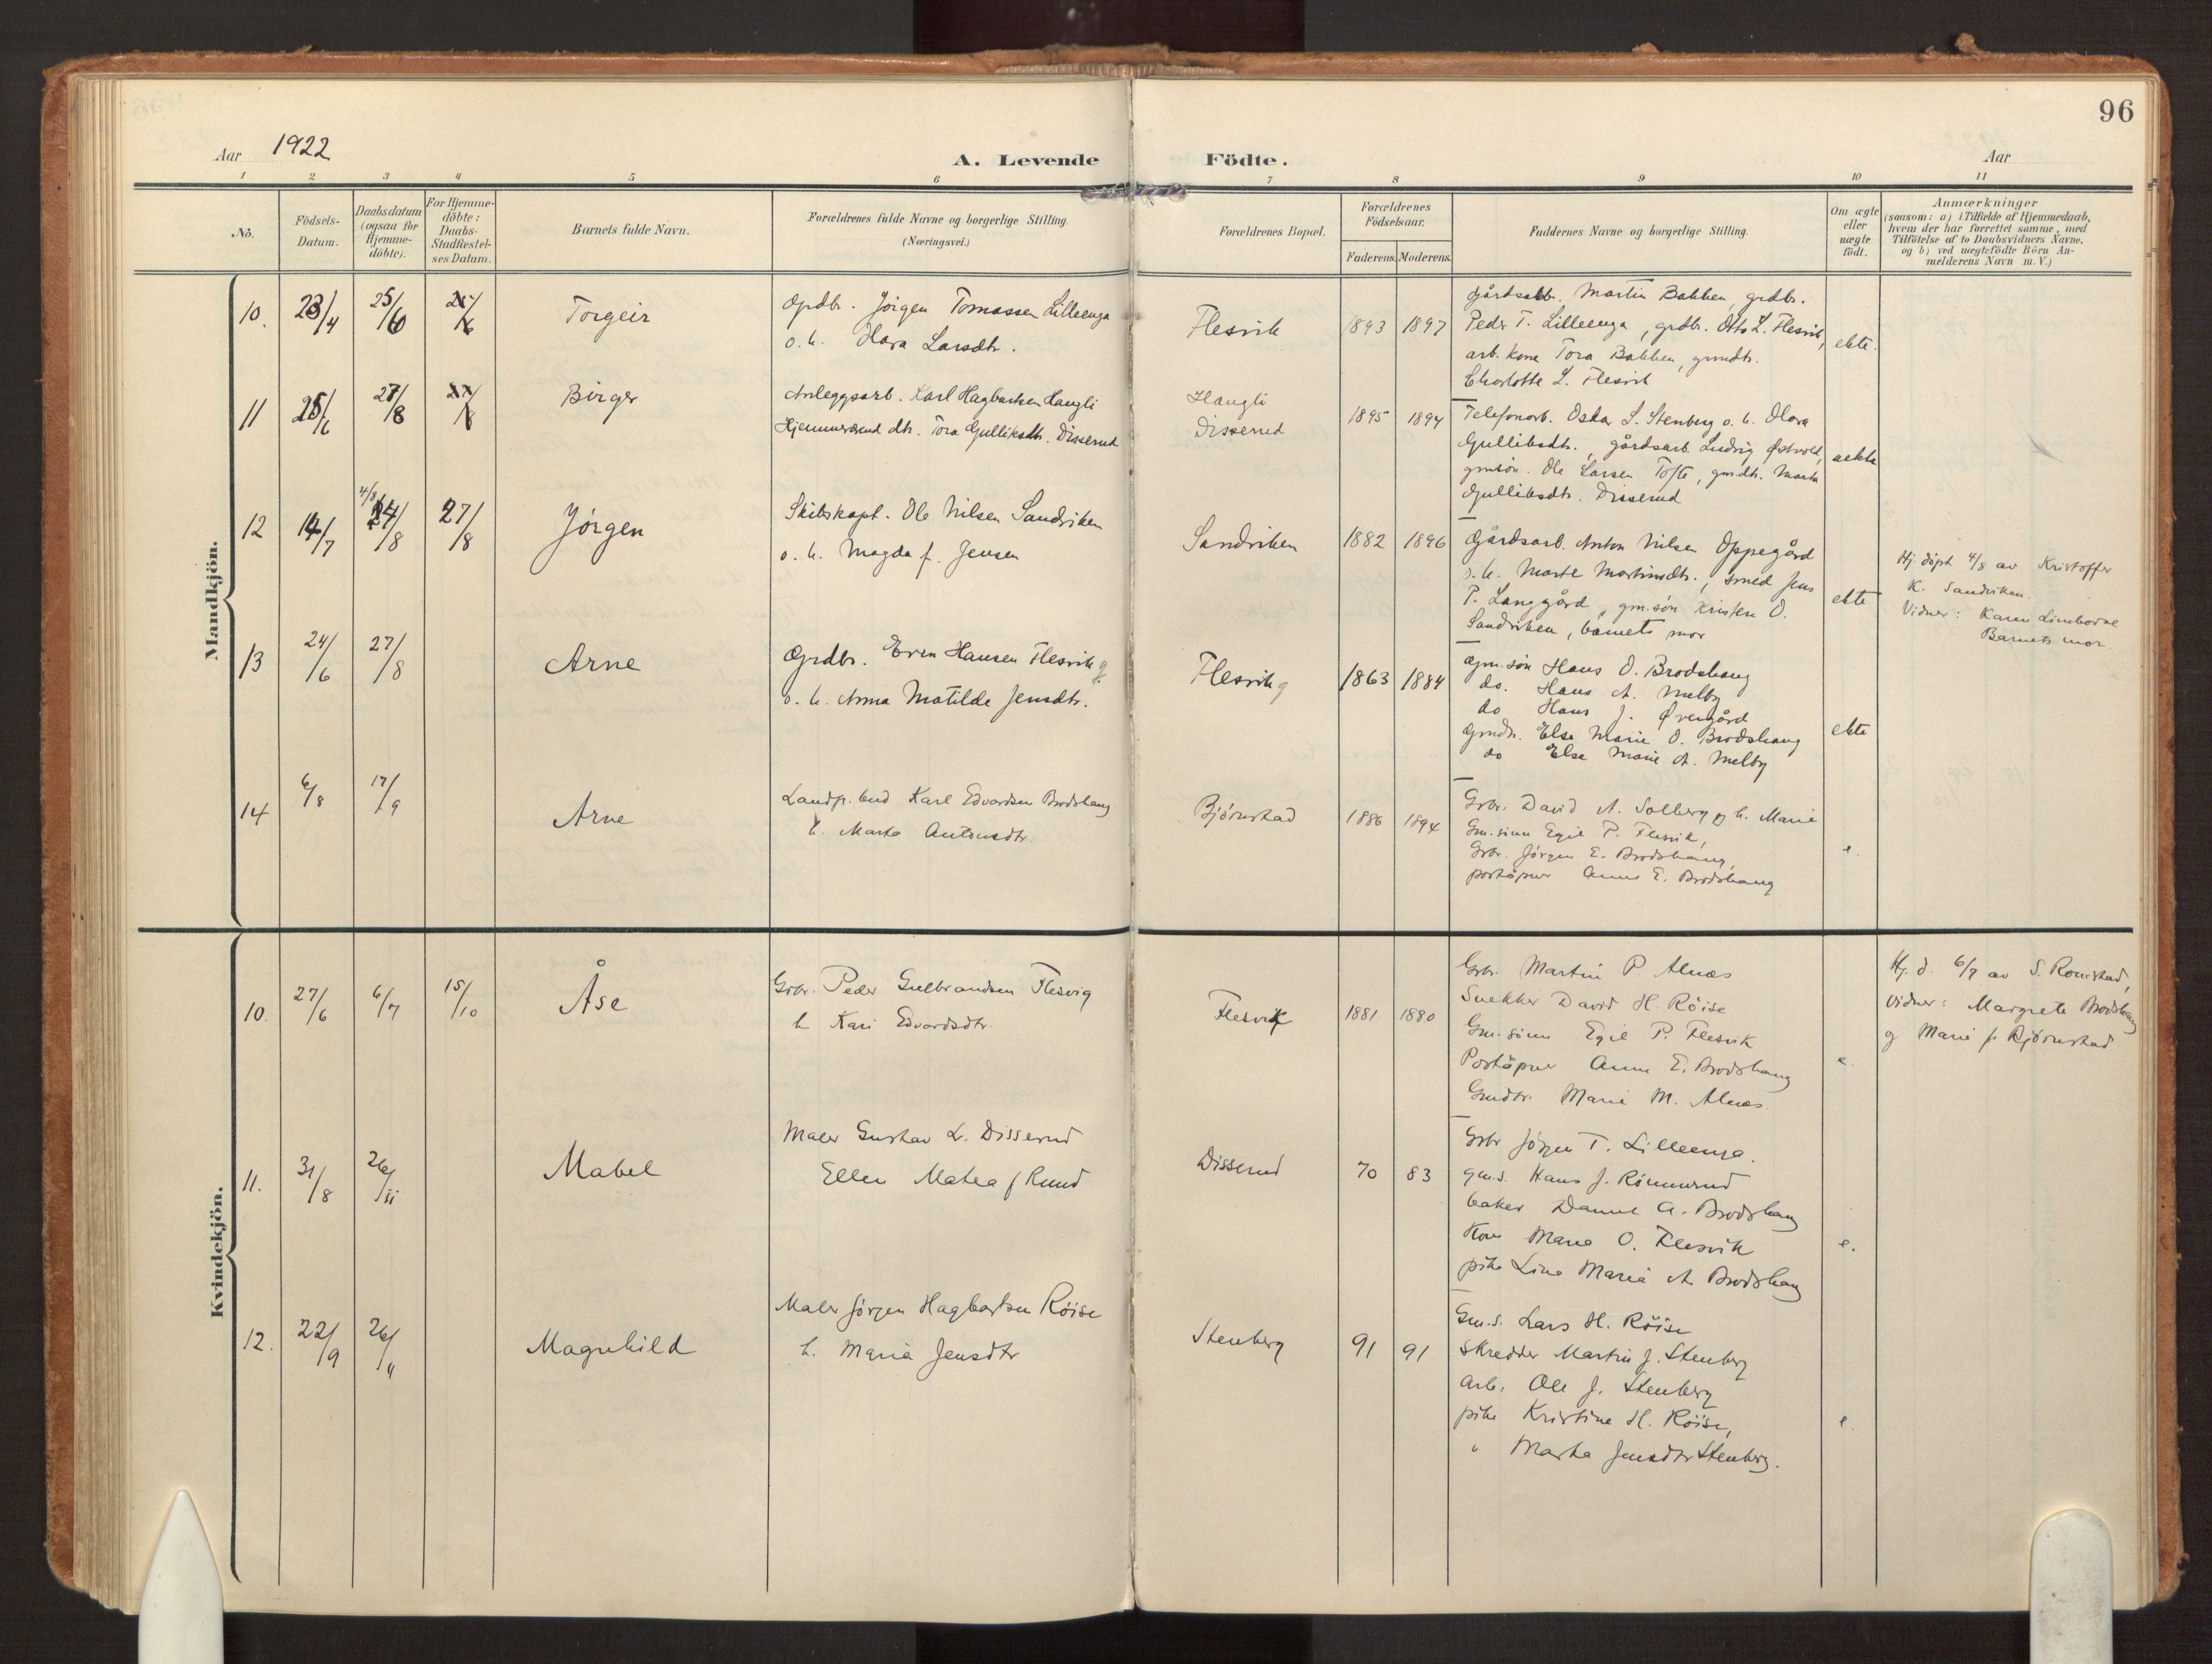 96
Aar 1922
A. Levende Födte.
Aar
1 2 3 4 5 6 7 8 9 10 11
Nö.
Födsels-Datum.
Daabsdatum (ogsaa for Hjemme-döbte).
For Hjemme-döbte: Daabs-Stadfæstel-ses Datum.
Barnets fulde Navn.
Forældrenes fulde Navne og borgerlige Stilling.
(Næringsvei.)
Forældrenes Bopæl.
Forældrenes Födselsaar.
Faderens. Moderens.
Faddernes Navne og borgerlige Stilling.
Om ægte eller uægte födt.
Anmærkninger
(saasom: a) i Tilfælde af Hjemmedaab,
hvem der har forrettet samme, med
Tilföielse af to Daabsvidners Navne,
og b) ved uægtefödte Börn An-
melderens Navn m. V.)
Mandkjön.
10. 23/4 25/6 Torgeir
Grdbr. Jörgen Tomassen Lilleenga
o. h. Olava Larsdtr.
Flesvik 1893 1897
Gårdsarb. Martin Bakken, grdbr.
Peder T. Lilleenga, grdb. Otto L. Flesvik,
arb. kone Tora Bakken, grmdtr.
Charlotte L. Flesvik
ekte.
11 25/6 27/8 Birger
Anleggsarb. Karl Hagbartsen Haugli
Hjemmeværend dtr. Tora Gulliksdtr. Disserud
Haugli
Disserud
1895 1894
Telefonarb. Oskar L. Stenberg o. h. Olava
Gulliksdtr., gårdsarb. Ludvig Østvold,
gmsön. Ole Larsen Tofte, gmdtr. Marta
Gulliksdtr. Disserud
uekte
12 14/7 4/8 27/8 27/8 Jörgen
Skibskapt. Ole Nilsen Sandviken
o. h. Magda f. Jensen
Sandviken 1882 1896
Gårdsarb. Anton Nilsen Oppegård
o. h. Marte Martinsdtr., smed Jens
P. Langgård, gm.sön Kristen O.
Sandviken, barnets mor
ekte
Hj. döpt 4/8 av Kristoffer
K. Sandviken.
Vidner: Karen
Barnets mor.
13 24/6 27/8 Arne
Grdbr. Even Hansen Flesvik
o. h. Anna Matilde Jensdtr.
Flesvik 1863 1884
Gm.sön Hans O. Brodshaug
do. Hans A. Melby
do Hans J. Övergård
Gmdtr. Else Marie O. Brodshaug
do Else Marie A. Melby
ekte
14 6/8 17/9 Arne
Landp.bud Karl Edvardsen Brodshaug
h. Marta Antonsdtr.
Bjørnstad 1886 1894
Grbr. David A. Solberg og h. Marie
Gm.sønn Egil P. Flesvik,
Grbr. Jørgen E. Brodshaug,
poståpner Anne E. Brodshaug
e.
Kvindekjön.
10. 27/6 6/7 15/10 Åse
Grbr. Peder Gulbrandsen Flesvig
h Kari Edvardsdtr.
Flesvik 1881 1880
Grbr. Martin P. Alnæs
Snekker David H. Røise
Gm.sønn Egil P. Flesvik
Poståpner Anne E. Brodshaug
Gmdtr. Marie M. Alnæs.
e.
Hj. d. 6/7 av S. Romstad,
Vidner: Margrete Brodshaug
og Marie f. Bjørnstad
11. 31/8 26/11 Mabel
Maler Gustav L. Disserud
Ellen Matea f Ruud
Disserud 70 83
Grbr Jørgen T. Lilleenga.
gm.s. Hans J. Rønnerud
baker Daniel A. Brodshaug
Kone Marie O. Flesvik
pike Lina Maria A. Brodshaug
e.
12. 22/9 26/11 Magnhild
Maler Jørgen Hagbartsen Røise
h. Maria Jensdtr
Stenberg 91 91
Gm.s. Lars H. Röise
Skredder Martin J. Stenberg
Arb. Ole J. Stenberg
pike Kristine H. Röise,
" Marta Jensdtr Stenberg.
e.